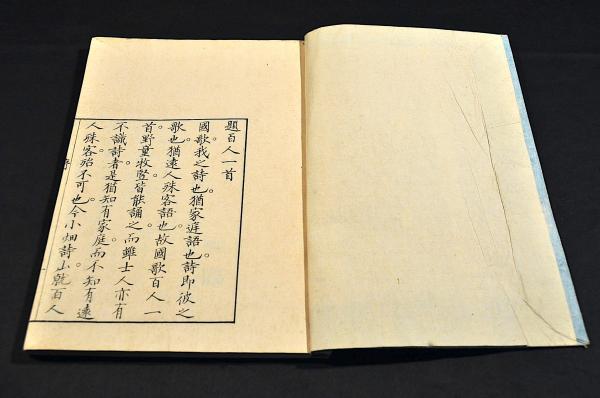 題百人一首
國歌我之詩也。猶家庭語也詩即彼之
歌也。猶遠人殊客語也。故國歌百人一
首。野童牧豎皆能誦之。而雖士人亦有
不識詩者。是猶知有家庭而不知有遠
人殊客。殆不可也。今小畑詩山就百人
序